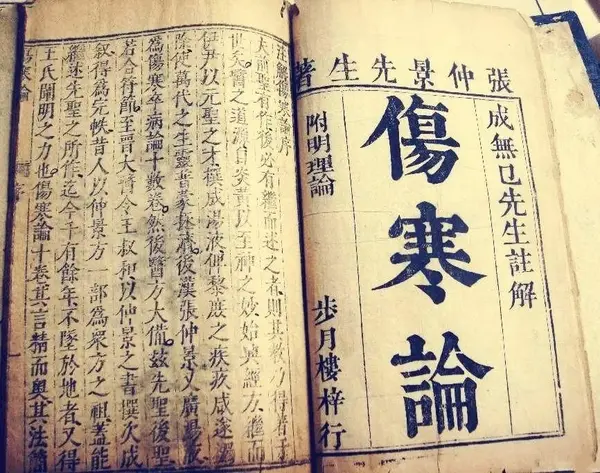 張仲景先生著
成無已先生註解
傷寒論
附明理論
步月樓梓行
注解傷寒論序
夫前聖有作後必有繼而述之者則其教乃得著于
世矣醫之道源自炎黃以至神之妙始興經方繼而
伊尹以元聖之才撰成湯液俾黎庶之疾疚咸遂蠲
除使萬代之生靈普蒙拯濟後漢張仲景又廣湯液
為傷寒卒病論十數卷然後醫方大備茲先聖後聖
若合符節至晉太醫令王叔和以仲景之書撰次成
敘得為完帙昔人以仲景方一部為眾方之祖蓋能
繼述先聖之所作迄今千有餘年不墜於地者又得
王氏闡明之力也傷寒論十卷其言精而奧其法簡
傷寒論 序